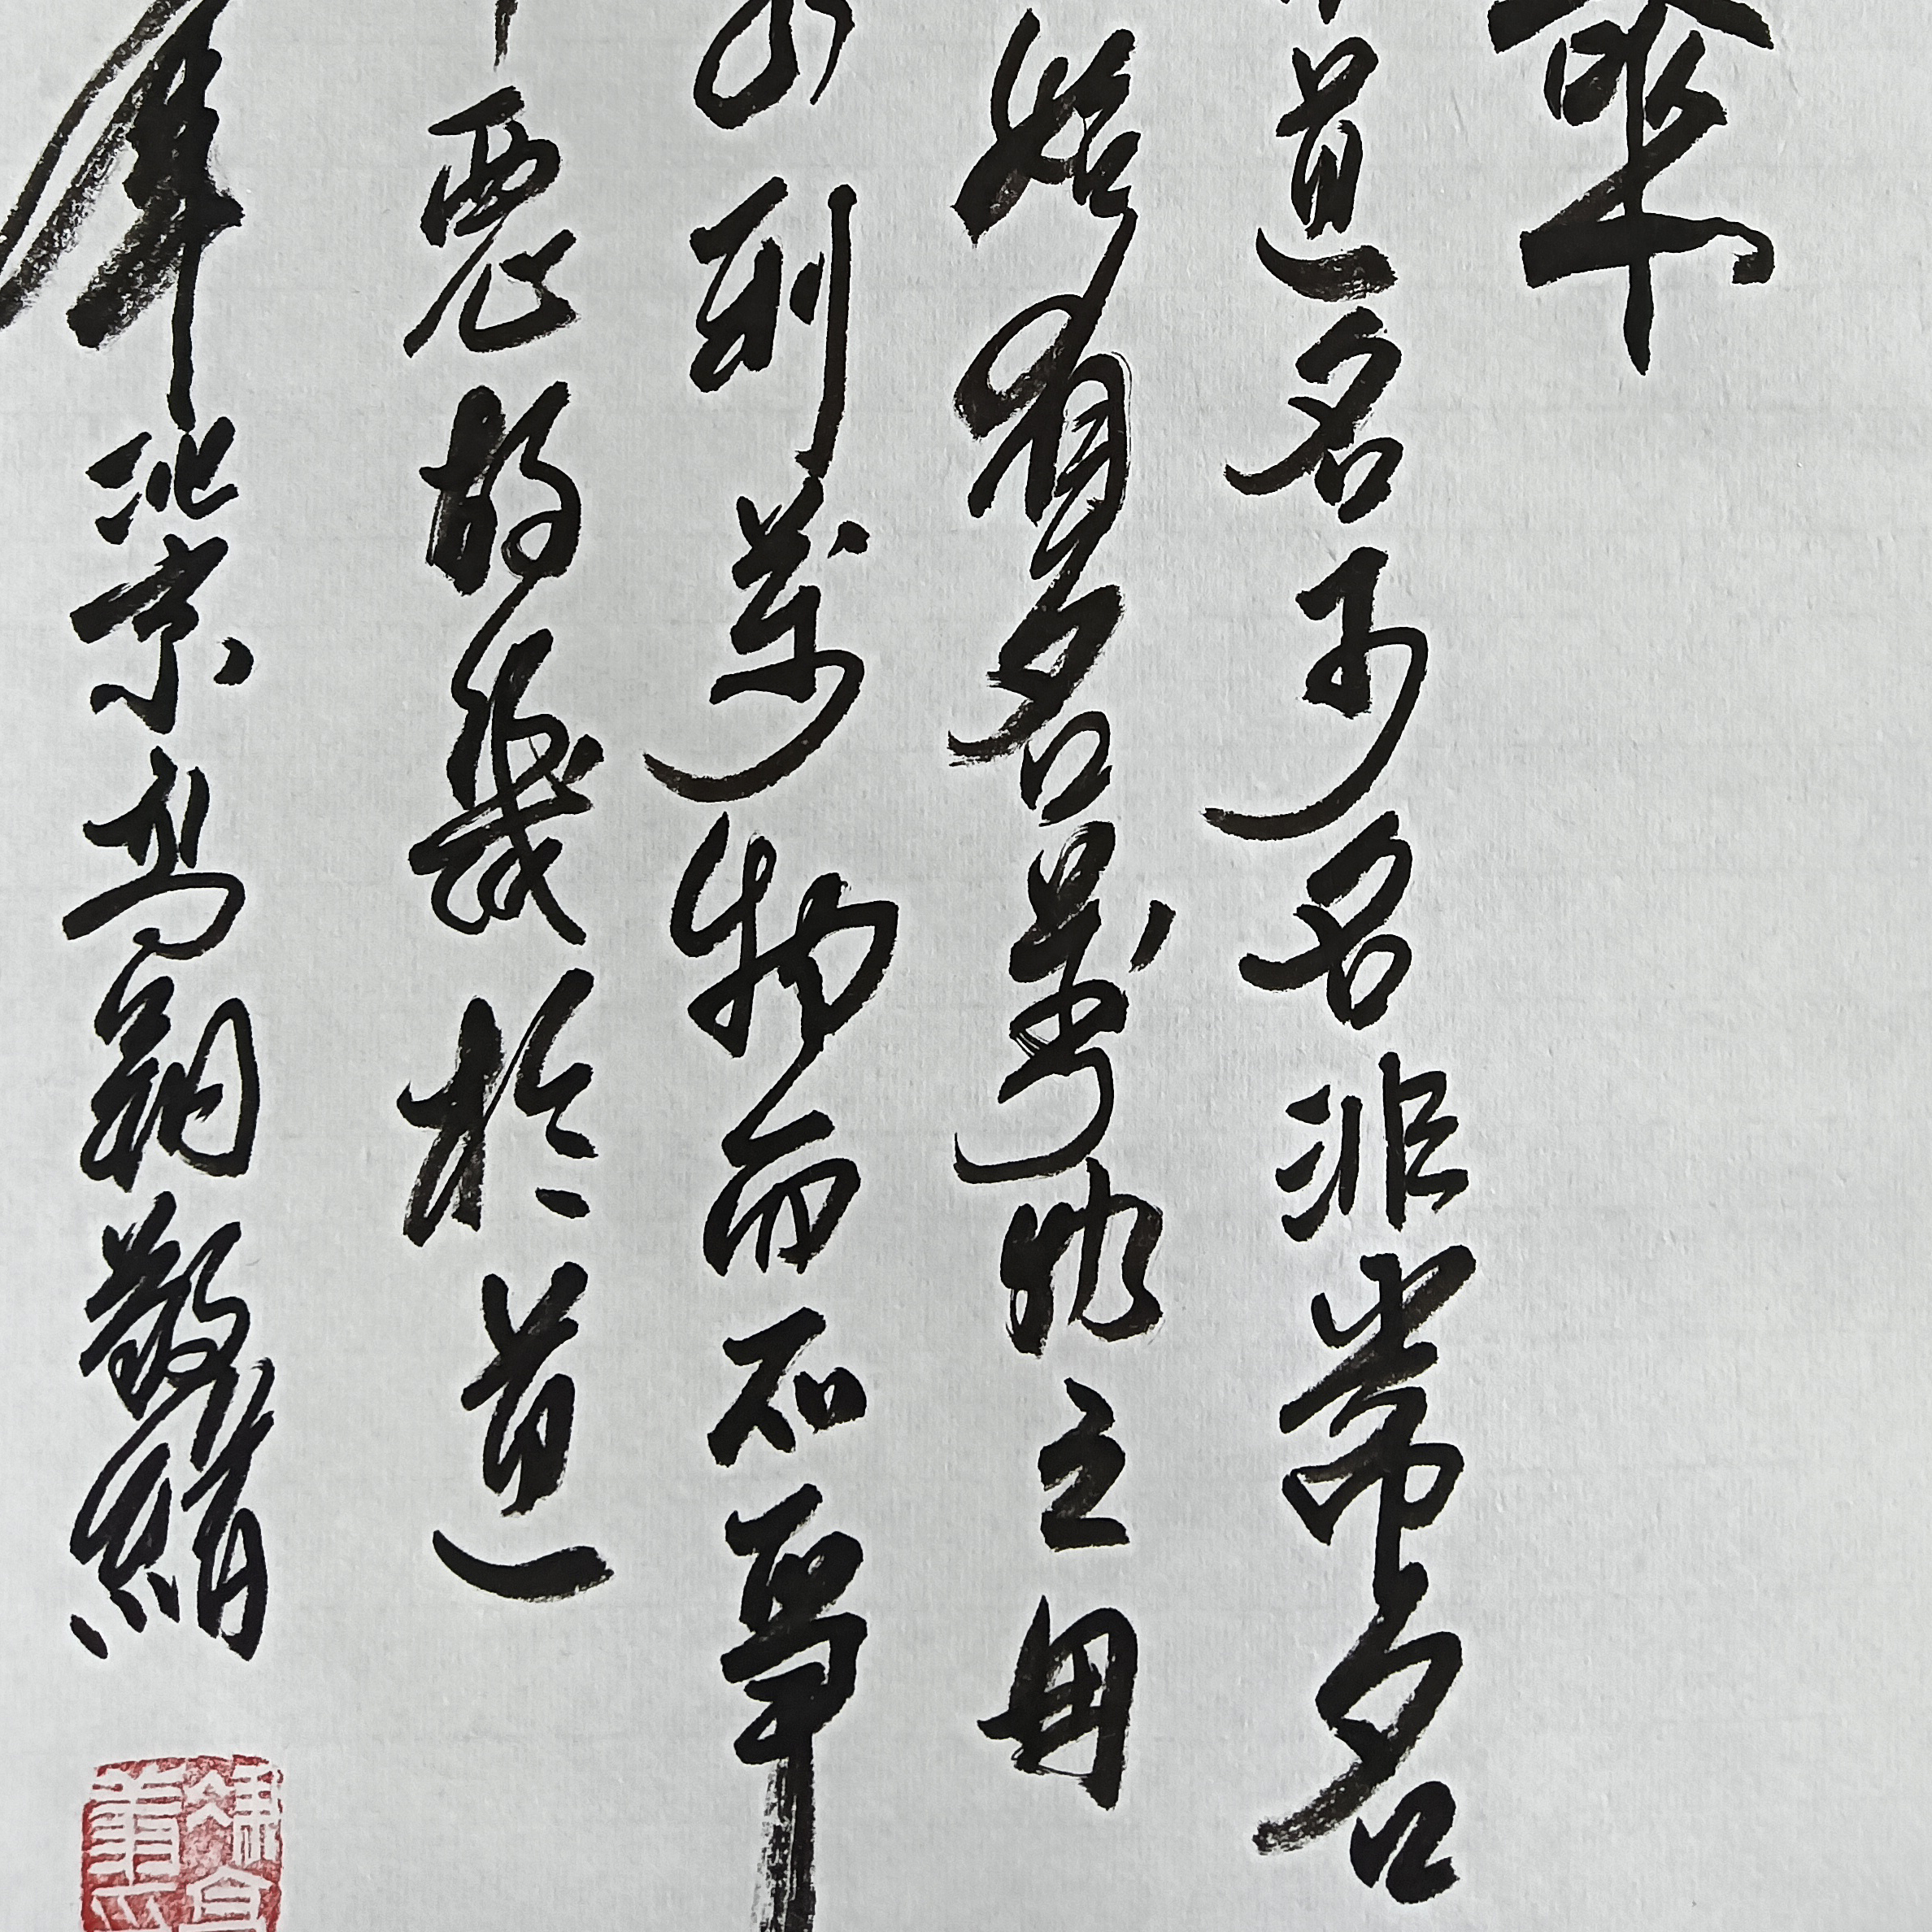 道名可名非常名
始有名萬物之母
利萬物而不爭
惡故幾於道
年北京高嗣敬